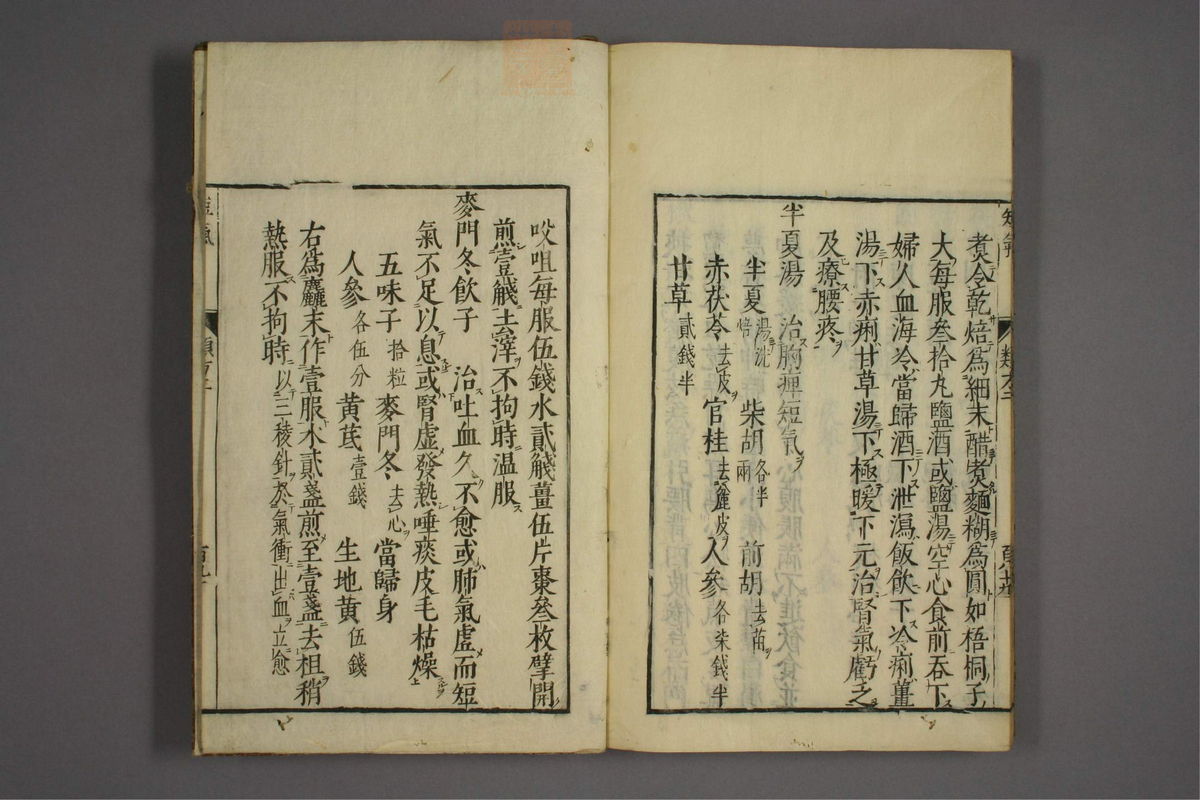 煑令乾焙爲細末醋煑麵糊爲圓如梧桐子
大每服叁拾丸鹽酒或鹽湯空心食前吞下
婦人血海冷當歸酒下泄瀉飯飲下冷痢薑
湯下赤痢甘草湯下極暖下元治腎氣虧乏
及療腰疼
半夏湯　治胸痺短氣心腹脹滿不進飲食並
半夏湯洗焙　柴胡各半兩　前胡去苗
赤茯苓去皮　官桂去麤皮　人參各柒錢半
甘草貳錢半
㕮咀每服伍錢水貳觥薑伍片棗叁枚擘開
煎壹觥去滓不拘時溫服
麥門冬飲子　治吐血久不愈或肺氣虛而短
氣不足以息或腎虛發熱唾痰皮毛枯燥
五味子拾粒　麥門冬去心　當歸身
人參各伍分　黃芪壹錢　生地黃伍錢
右爲麤末作壹服水貳盞煎至壹盞去柤稍
熱服不拘時以三稜針於氣衝出血立愈